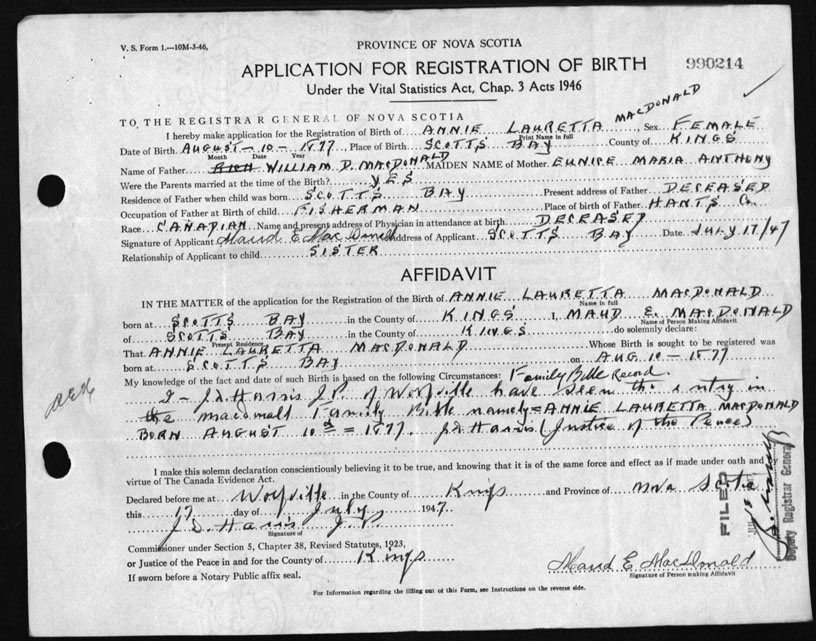 V. S. Form 1.—10M-3-46,
PROVINCE OF NOVA SCOTIA
990214
APPLICATION FOR REGISTRATION OF BIRTH
Under the Vital Statistics Act, Chap. 3 Acts 1946
TO THE REGISTRAR GENERAL OF NOVA SCOTIA
I hereby make application for the Registration of Birth of ANNIE LAURETTA MACDONALD Sex FEMALE
Print Name in full
Date of Birth AUGUST-10-1877, Place of Birth SCOTTS BAY County of KINGS
Month Date Year
Name of Father WILLIAM D. MACDONALD MAIDEN NAME of Mother EUNICE MARIA ANTHONY
Were the Parents married at the time of the Birth? YES
Residence of Father when child was born SCOTTS BAY Present address of Father DECEASED
Occupation of Father at Birth of child FISHERMAN Place of Birth of Father HANTS Co.
Race CANADIAN Name and present address of Physician in attendance at birth DECEASED
Signature of Applicant Maud E. MacDonald Address of Applicant SCOTTS BAY Date JULY 17/47
Relationship of Applicant to child SISTER
AFFIDAVIT
IN THE MATTER of the application for the Registration of the Birth of ANNIE LAURETTA MACDONALD
Name in full
born at SCOTTS BAY in the County of KINGS I, MAUD E. MACDONALD
Name of Person Making Affidavit
of SCOTTS BAY in the County of KINGS do solemnly declare:
Present Residence
That ANNIE LAURETTA MACDONALD Whose Birth is sought to be registered was
born at SCOTTS BAY on AUG. 10-1877
My knowledge of the fact and date of such Birth is based on the following Circumstances: Family Bible Record.
I - J.D. Harris J.P. of Wolfville have seen the entry in
the Macdonald Family Bible namely = ANNIE LAURETTA MACDONALD
BORN AUGUST 10th = 1877. J.D. Harris (Justice of the Peace)
I make this solemn declaration conscientiously believing it to be true, and knowing that it is of the same force and effect as if made under oath and
virtue of The Canada Evidence Act.
Declared before me at Wolfville in the County of Kings and Province of Nova Scotia
this 17 day of July 1947
J. D. Harris J.P.
Signature of
Commissioner under Section 5, Chapter 38, Revised Statutes, 1923,
or Justice of the Peace in and for the County of Kings
If sworn before a Notary Public affix seal.
Maud E. MacDonald
Signature of Person making Affidavit
FILED
Deputy Registrar General
For Information regarding the filling out of this Form, see Instructions on the reverse side.